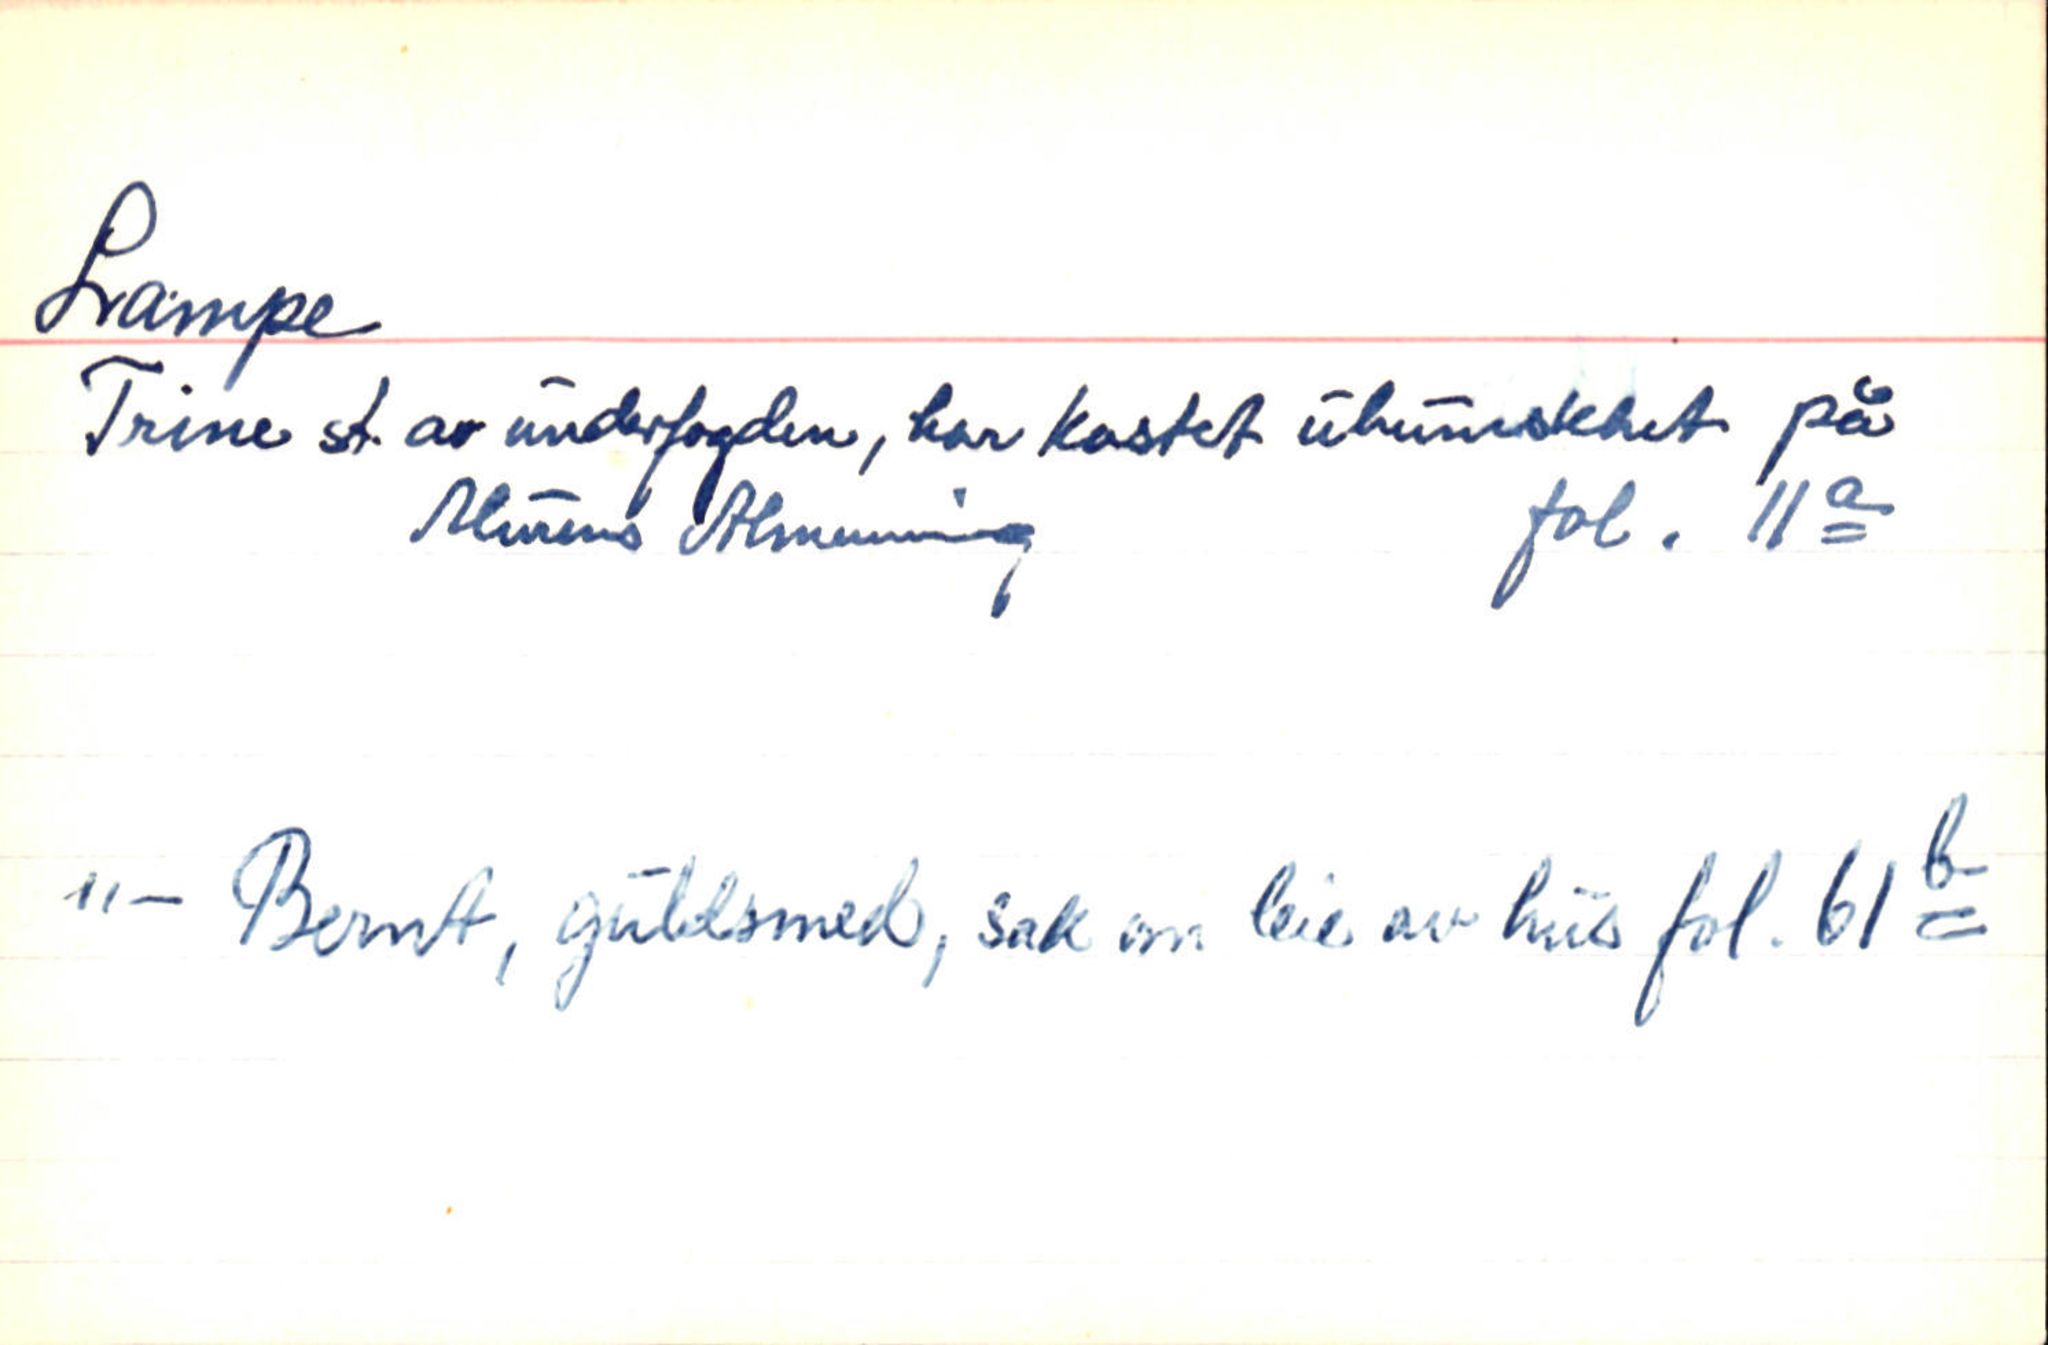 Lampe
Trine st. av underfogden, har kastet uhumskhet på
Murens Almenning fol. 11a
"- Bernt, guldsmed, sak om leie av hus fol. 61b